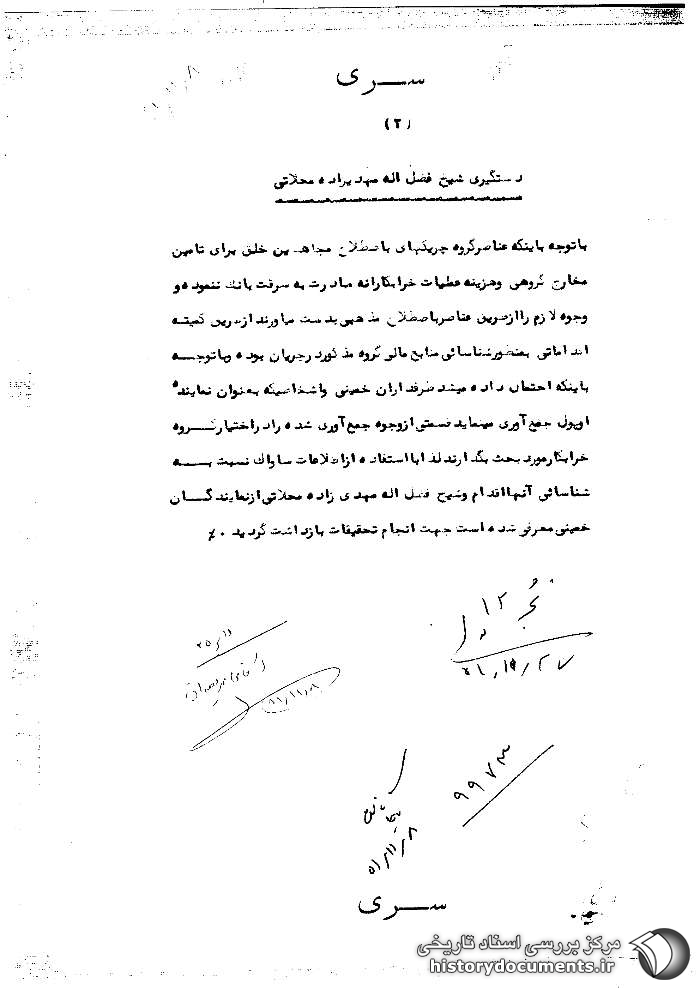 سری
(۲)
دستگیری شیخ فضل اله مهدیزاده محلاتی
باتوجه باینکه عناصر گروه چریکهای باصطلاح مجاهدین خلق برای تامین
مخارج گروهی وهزینه عملیات خرابکارانه مبادرت به سرقت بانک ننموده و
وجوه لازم را ازطریق عناصر باصطلاح مذهبی بدست میاورند ازطریق کمیته
اقداماتی بمنظور شناسائی منابع مالی گروه مذکور درجریان بوده وباتوجه
باینکه احتمال داده میشد طرفداران خمینی واشخاصیکه بعنوان نماینده
اوپول جمع آوری مینماید قسمتی ازوجوه جمع آوری شده رادراختیار گروه
خرابکار مورد بحث بگذارند لذا با استفاده ازاطلاعات ساواک نسبت به
شناسائی آنها اقدام وشیخ فضل اله مهدی زاده محلاتی ازنمایندگان
خمینی معرفی شده است جهت انجام تحقیقات بازداشت گردید ۰٪
۹۹۷۳
سری
مرکز بررسی اسناد تاریخی
historydocuments.ir